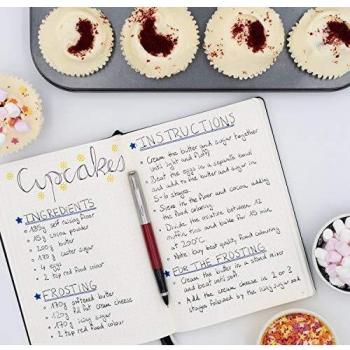 Cupcakes
INGREDIENTS
• 185g self raising flour
• 15g cocoa powder
• 200g butter
• 170g caster sugar
• 4 eggs
• 2 tsp red food colour
FROSTING
• 170g softened butter
• 120g full fat cream cheese
• 170g icing sugar
• 2 tsp red food colour
INSTRUCTIONS
• Cream the butter and sugar together
until light and fluffy
• Beat the eggs in a separate bowl
and add to the butter and sugar in
5-6 stages.
• Sieve in the flour and cocoa adding
the food colouring.
• Divide the mixture between 12
muffin tins and bake for 15 min
at 200°C.
• Note: buy best quality food colouring
FOR THE FROSTING
• Cream the butter in a stand mixer
and beat well
• Add the cream cheese in 2 or 3
stages followed by the icing sugar and